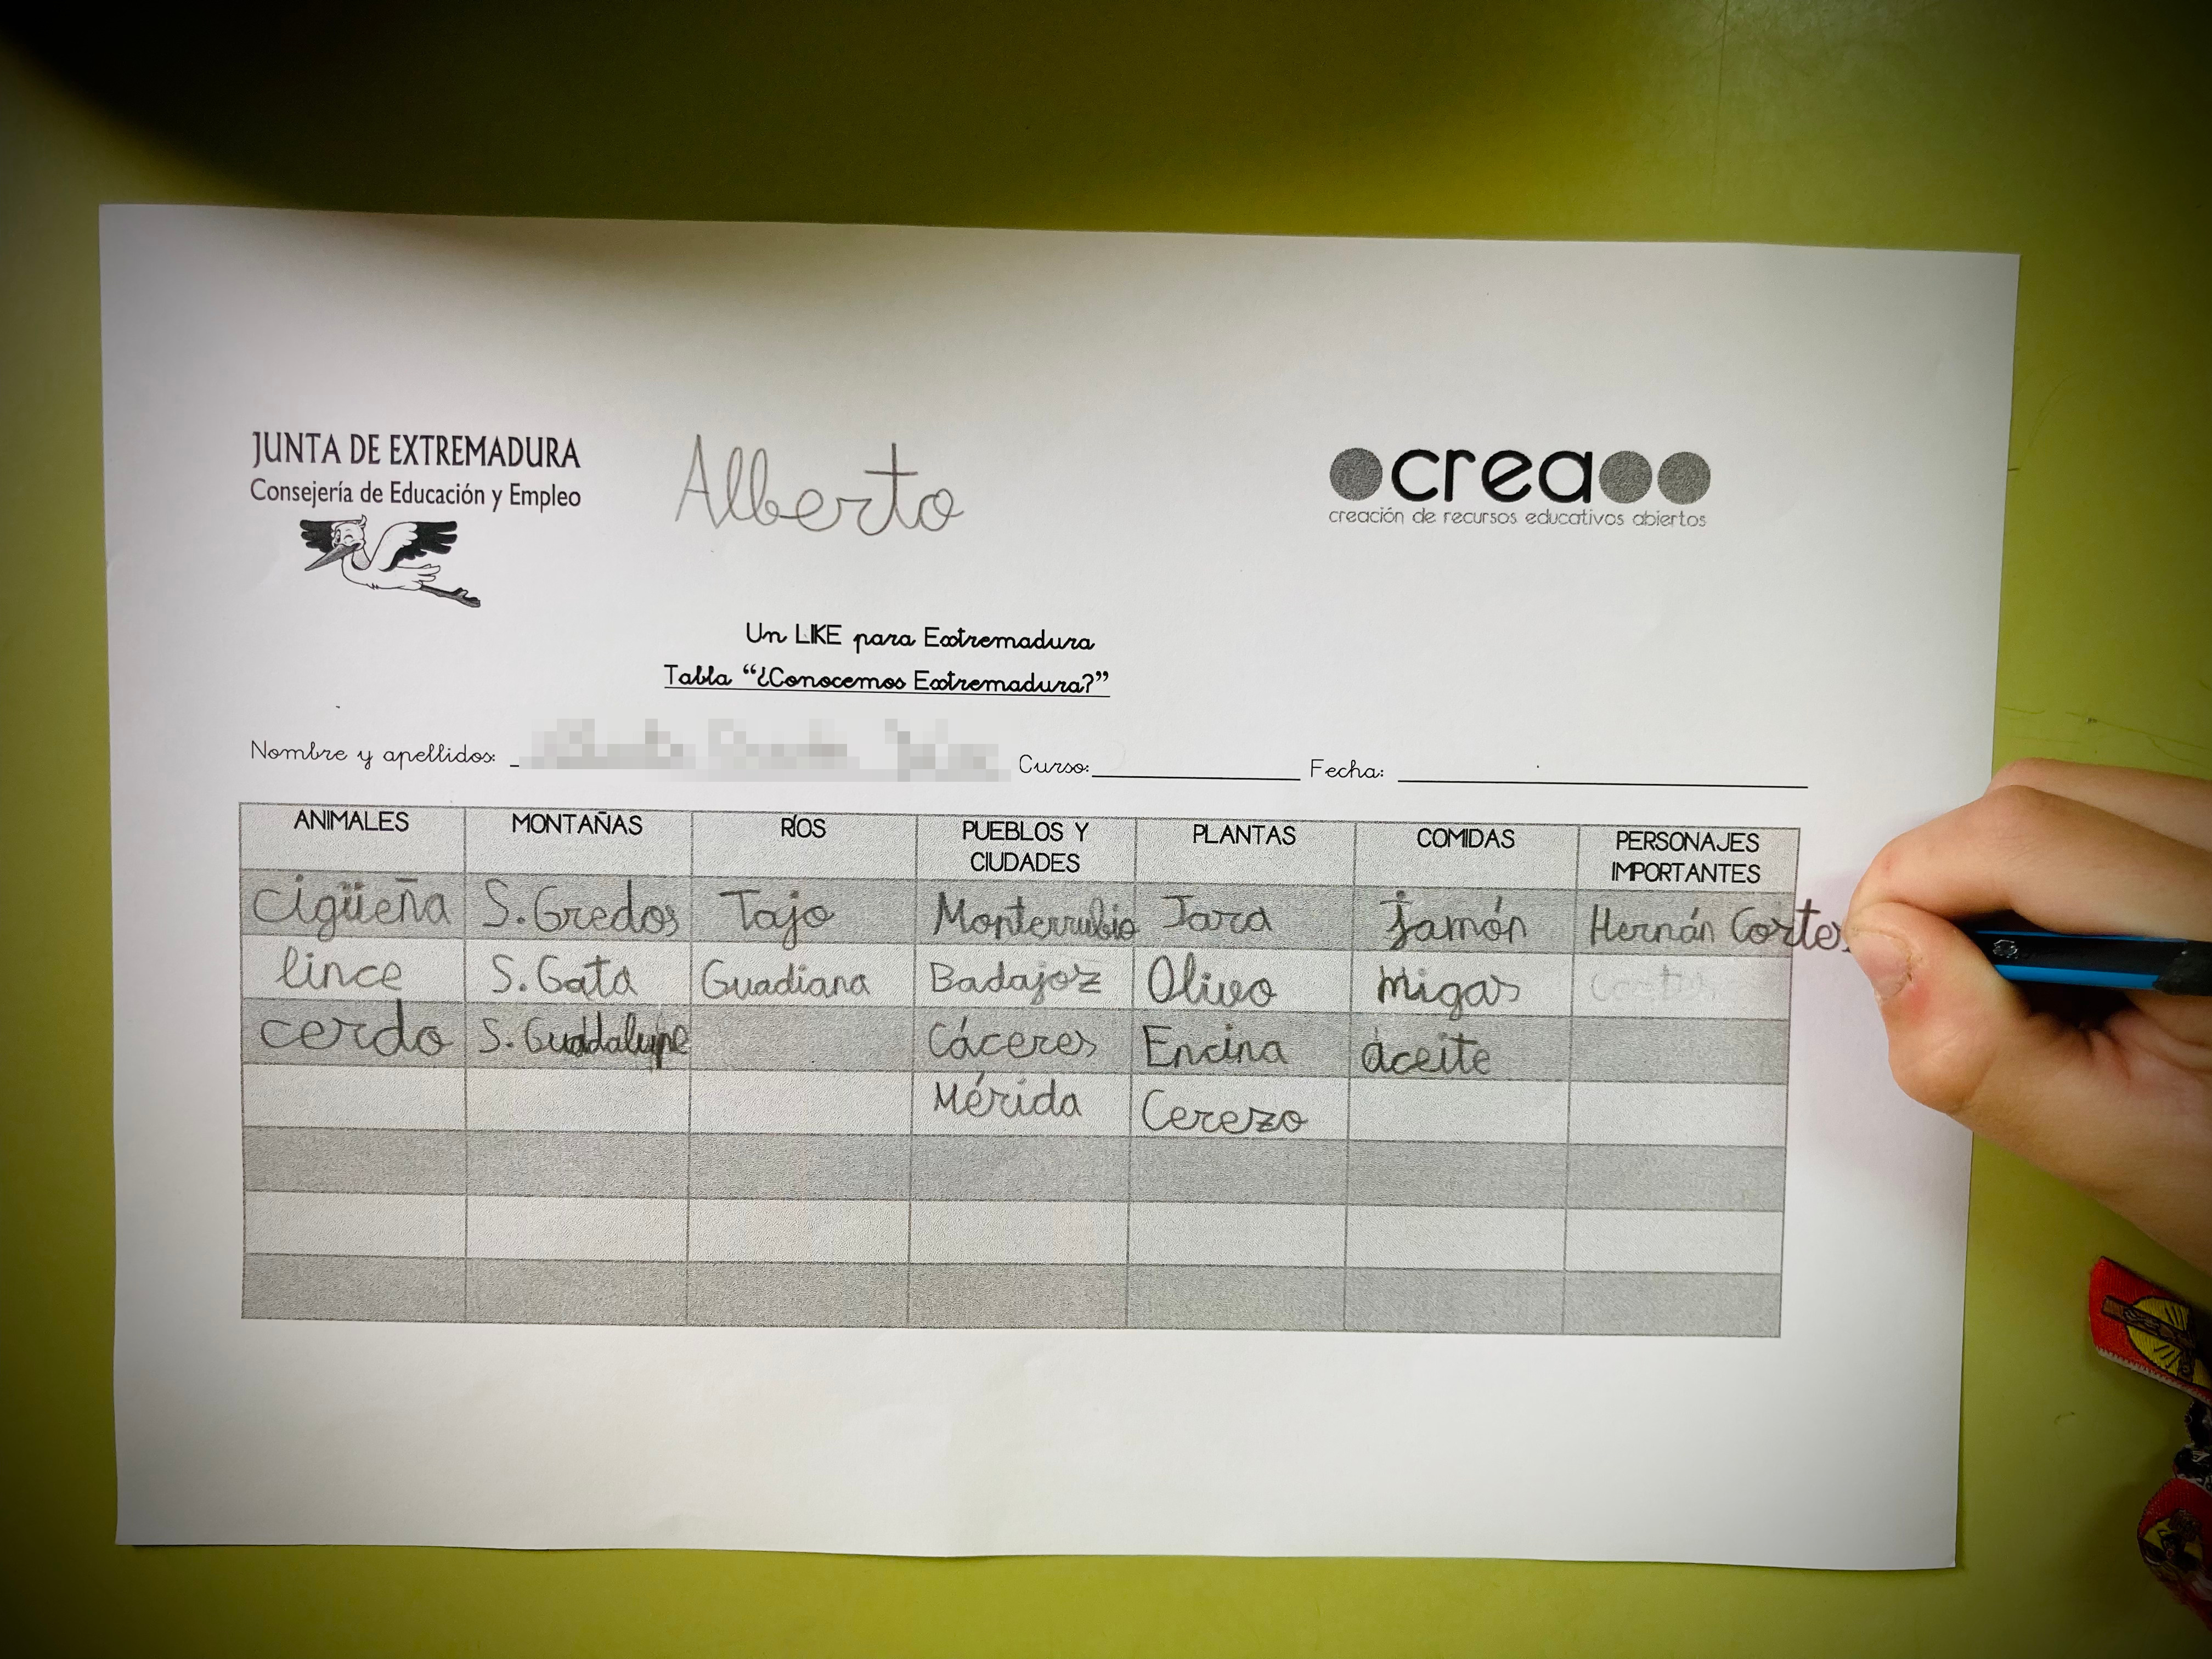 JUNTA DE EXTREMADURA
Consejería de Educación y Empleo
Alberto
crea
creación de recursos educativos abiertos
Un LIKE para Extremadura
Tabla “¿Conocemos Extremadura?”
Nombre y apellidos: Curso: Fecha:
ANIMALES MONTAÑAS RÍOS PUEBLOS Y CIUDADES PLANTAS COMIDAS PERSONAJES IMPORTANTES
cigüeña S. Gredos Tajo Monterrubio Jara jamón Hernán Cortes
lince S. Gata Guadiana Badajoz Olivo migas
cerdo S. Guadalupe Cáceres Encina aceite
Mérida Cerezo